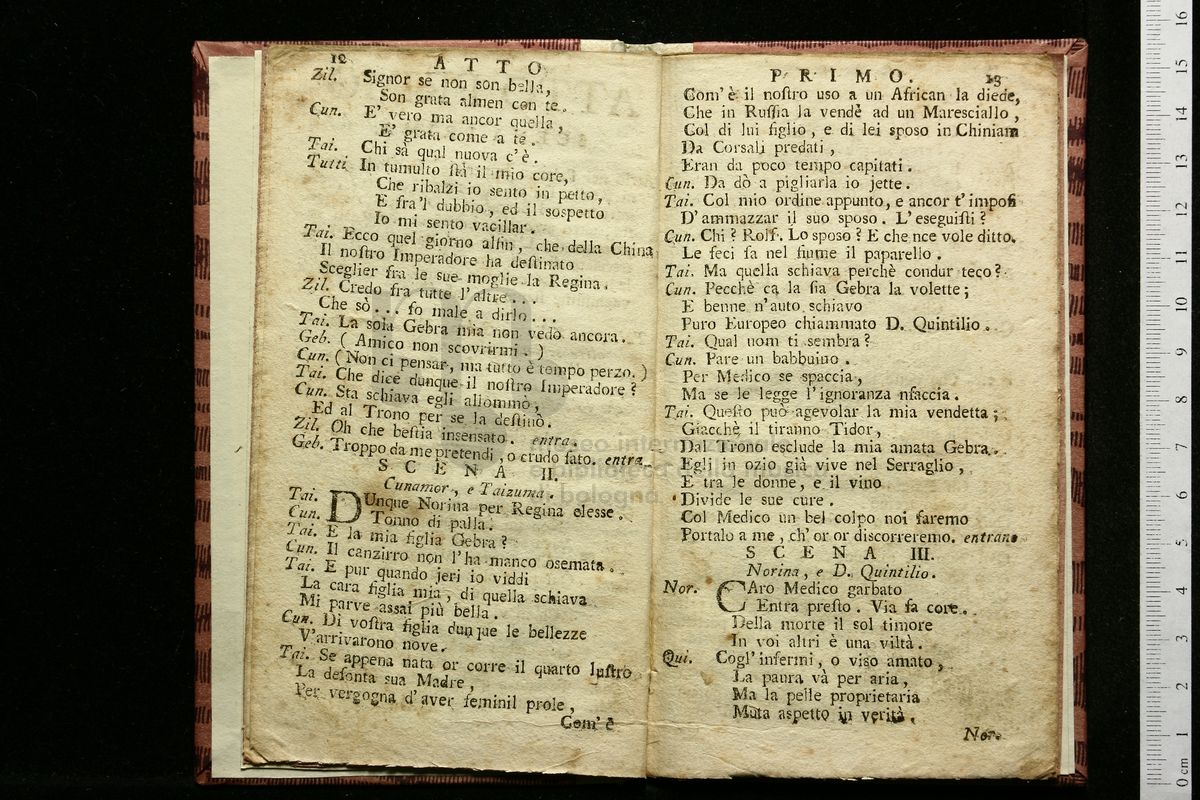 12 ATTO
Zil. Signor se non son bella,
Son grata almen con te.
Cun. E' vero ma ancor quella,
E' grata come a te.
Tai. Chi sà qual nuova c'è.
Tutti In tumulto stà il mio core,
Che ribalzi io sento in petto,
E fra'l dubbio, ed il sospetto
Io mi sento vacillar.
Tai. Ecco quel giorno alfin, che della China
Il nostro Imperadore ha destinato
Sceglier fra le sue moglie la Regina.
Zil. Credo fra tutte l'altre...
Che sò... fo male a dirlo...
Tai. La sola Gebra mia non vedo ancora.
Geb. (Amico non scovrirmi.)
Cun. (Non ci pensar, ma tutto è tempo perzo.)
Tai. Che dice dunque il nostro Imperadore?
Cun. Sta schiava egli allommò,
Ed al Trono per se la destinò.
Zil. Oh che bestia insensato. entra.
Geb. Troppo da me pretendi, o crudo fato. entra
SCENA II.
Cunamor, e Taizuma.
Tai. DUnque Norina per Regina elesse.
Cun. Tonno di palla.
Tai. E la mia figlia Gebra?
Cun. Il canzirro non l'ha manco osemata.
Tai. E pur quando jeri io viddi
La cara figlia mia, di quella schiava
Mi parve assai più bella.
Cun. Di vostra figlia dunque le bellezze
V'arrivarono nove.
Tai. Se appena nata or corre il quarto lustro
La defonta sua Madre,
Per vergogna d'aver feminil prole,
Com' è
PRIMO. 13
Com' è il nostro uso a un African la diede,
Che in Russia la vendè ad un Maresciallo,
Col di lui figlio, e di lei sposo in Chiniam
Da Corsali predati,
Eran da poco tempo capitati.
Cun. Da dò a pigliarla io jette.
Tai. Col mio ordine appunto, e ancor t'imposi
D'ammazzar il suo sposo. L'eseguisti?
Cun. Chi? Rolf. Lo sposo? E che nce vole ditto.
Le feci fa nel fiume il paparello.
Tai. Ma quella schiava perchè condur teco?
Cun. Pecchè ca la sia Gebra la volette;
E benne n'auto schiavo
Puro Europeo chiammato D. Quintilio.
Tai. Qual uom ti sembra?
Cun. Pare un babbuino.
Per Medico se spaccia,
Ma se le legge l'ignoranza nfaccia.
Tai. Questo può agevolar la mia vendetta;
Giacchè il tiranno Tidor,
Dal Trono esclude la mia amata Gebra,
Egli in ozio già vive nel Serraglio,
E tra le donne, e il vino
Divide le sue cure.
Col Medico un bel colpo noi faremo
Portalo a me, ch' or or discorreremo. entrano
SCENA III.
Norina, e D. Quintilio.
Nor. CAro Medico garbato
Entra presto. Via fa core.
Della morte il sol timore
In voi altri è una viltà.
Qui. Cogl'infermi, o viso amato,
La paura và per aria,
Ma la pelle proprietaria
Muta aspetto in verità.
Nor.
museo internazionale
e biblioteca della musica
bologna
0 cm 1 2 3 4 5 6 7 8 9 10 11 12 13 14 15 16